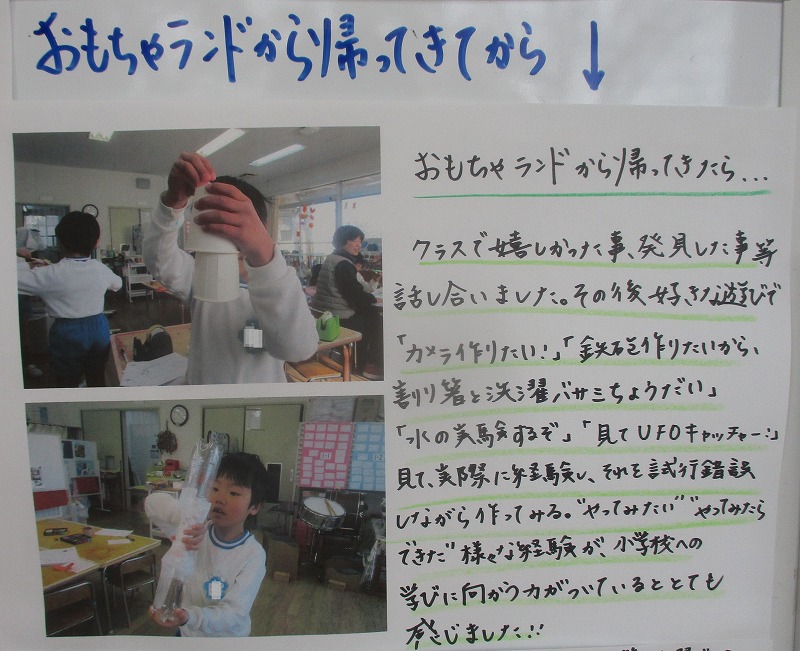 おもちゃランドから帰ってきてから ↓
おもちゃランドから帰ってきたら...
クラスで嬉しかった事、発見した事等
話し合いました。その後好きな遊びで
「カメラ作りたい！」「鉄砲作りたいから、
割り箸と洗濯バサミちょうだい」
「水の実験するぞ」「見てUFOキャッチャー！」
見て、実際に経験し、それを試行錯誤
しながら作ってみる。"やってみたい""やってみたら
できた"様々な経験が、小学校への
学びに向かう力がついているととても
感じました!!